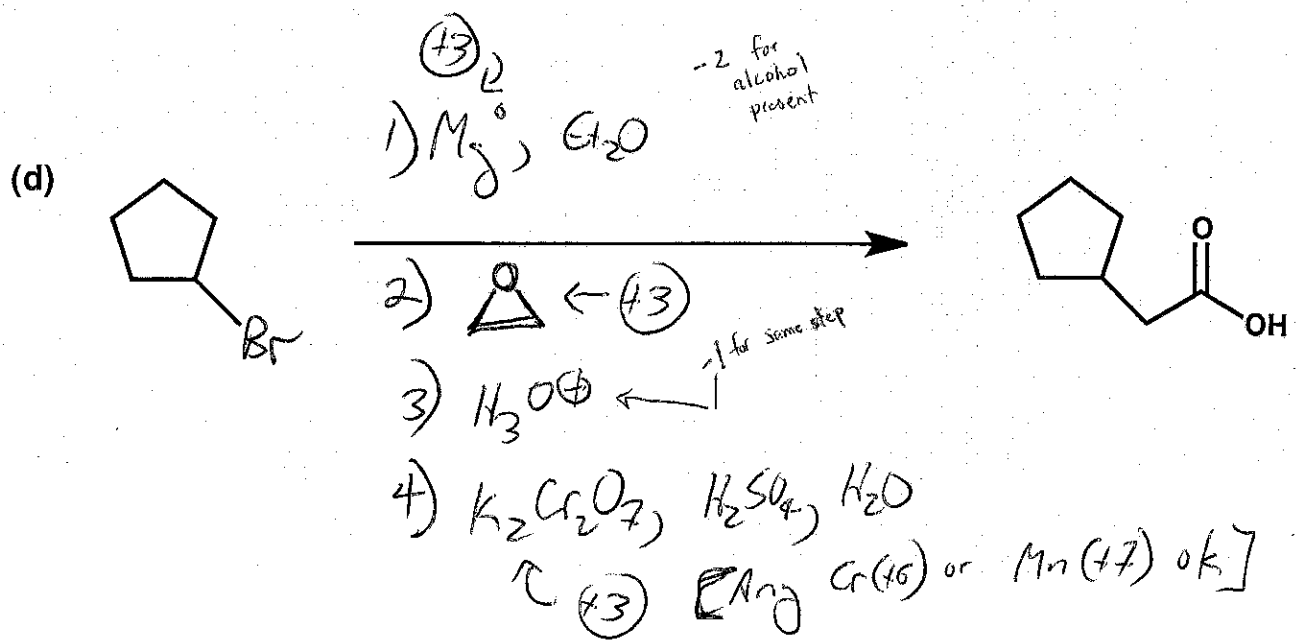 +3
1) Mg°, Et₂O
--2 for
alcohol
present
(d)
Br
O
OH
2) O ← +3
-1 for same step
3) H₃O⊕ ←
4) K₂Cr₂O₇, H₂SO₄, H₂O
+3 [Any Cr(+6) or Mn(+7) ok]